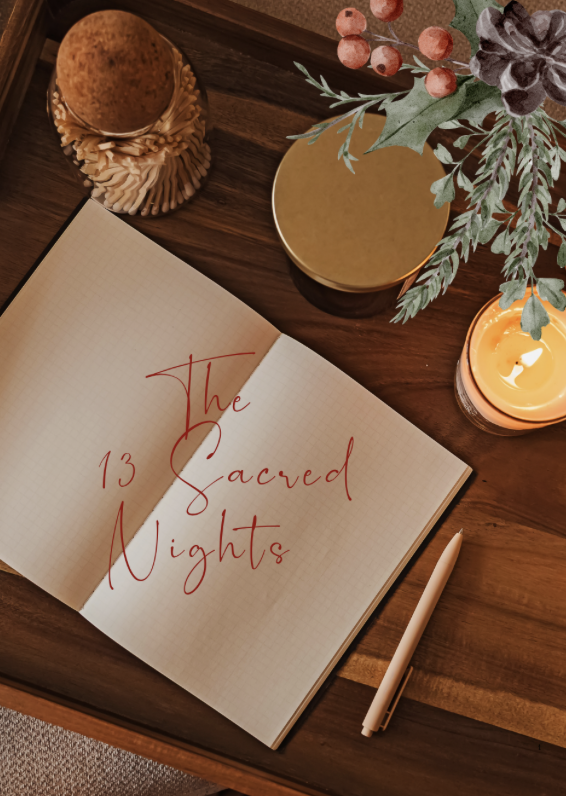 The
13 Sacred
Nights